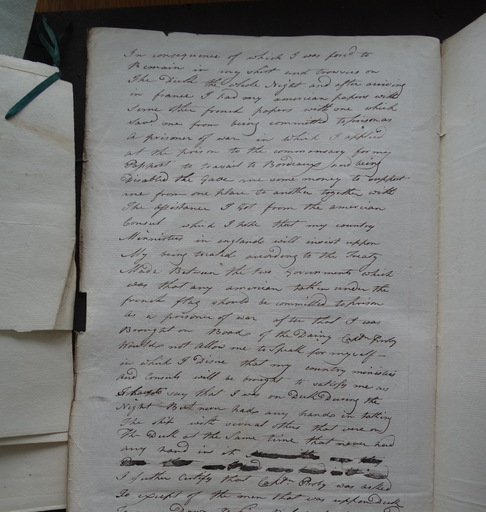 In consequence of which I was forcd to
Remain in my shirt and trowsers on
The Deck the whole Night and after arriving
in france I had my american papers with
Some other french papers with one which
Save me from being committed to prison as
a prisoner of war in which I applied
at the prison to the commissary for my
Passport to travail to Bordeaux and being
Disabled the Gave me some money to support
me from one place to another together with
The assistance I Got from the american
Consul which I hope that my country
Ministers in england will insist upon
My being treated according to the Treaty
Made Between the two Governments which
was that any american taken under the
french flag should be committed to prison
as a prisoner of war after that I was
Brought on Board of the Daring Captn Proby
Would not allow me to Speak for myself
in which I Disire that my country ministers
and Consuls will be brought to satisfy me as
to say that I was on Deck During the
Night But never had any hands in taking
The ship with several others that were on
The Deck at the Same time that never had
any hand in it
I further Certify that Captn Proby was asked
To except of the men that was uppon Deck